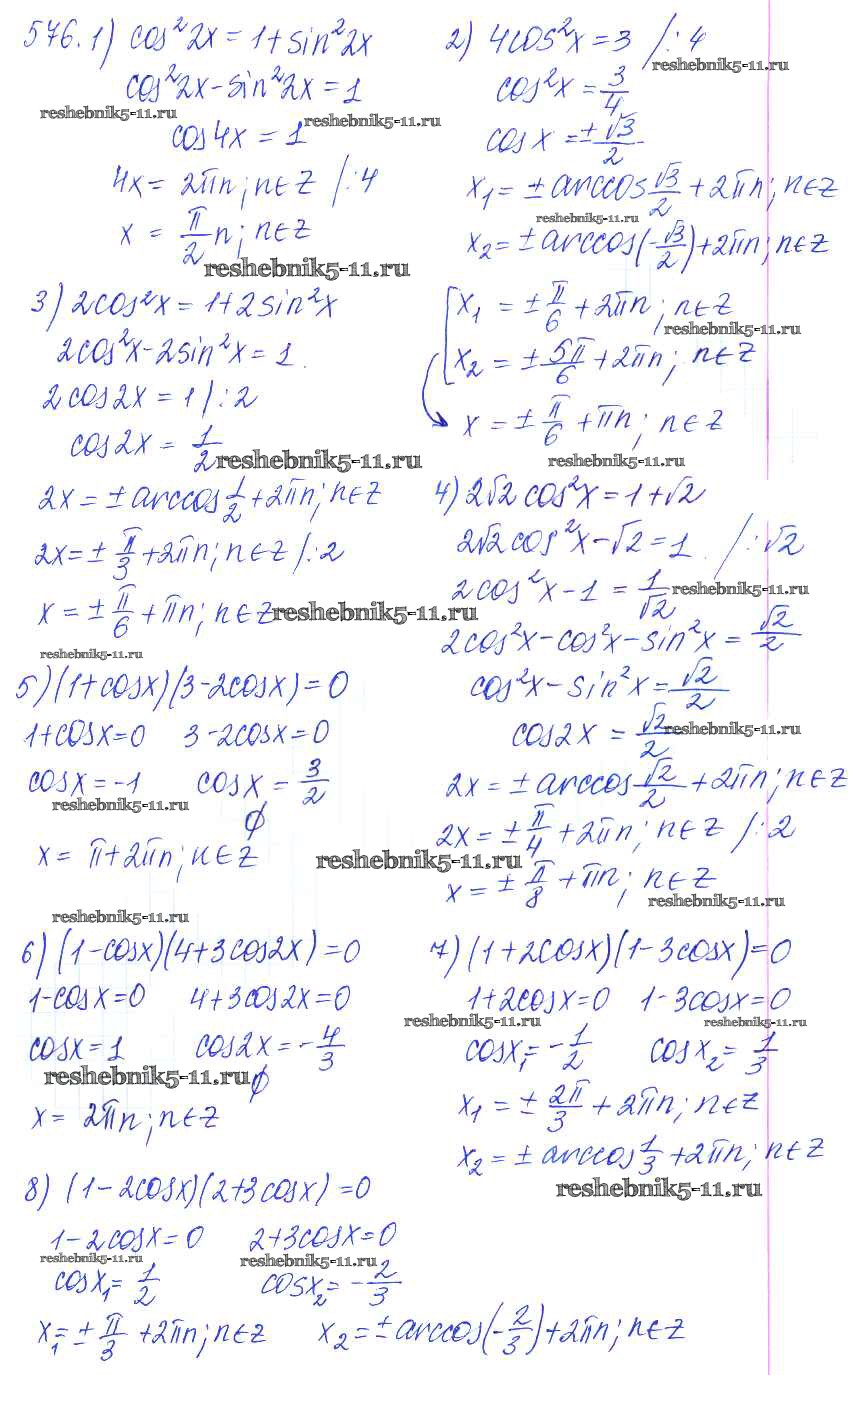 576. 1) cos²2x = 1 + sin²2x
cos²2x - sin²2x = 1
reshebnik5-11.ru
cos4x = 1
reshebnik5-11.ru
4x = 2πn; n∈Z /:4
x = π/2 n; n∈Z
reshebnik5-11.ru
2) 4cos²x = 3 /:4
reshebnik5-11.ru
cos²x = 3/4
cos x = ±√3/2
x₁ = ± arccos √3/2 + 2πn; n∈Z
reshebnik5-11.ru
x₂ = ± arccos(-√3/2) + 2πn; n∈Z
[x₁ = ± π/6 + 2πn; n∈Z
reshebnik5-11.ru
x₂ = ± 5π/6 + 2πn; n∈Z
x = ± π/6 + πn; n∈Z
reshebnik5-11.ru
3) 2cos²x = 1 + 2sin²x
2cos²x - 2sin²x = 1
2cos2x = 1 /:2
cos2x = 1/2
reshebnik5-11.ru
2x = ± arccos 1/2 + 2πn; n∈Z
2x = ± π/3 + 2πn; n∈Z /:2
x = ± π/6 + πn; n∈Z
reshebnik5-11.ru
reshebnik5-11.ru
4) 2√2 cos²x = 1 + √2
2√2 cos²x - √2 = 1 /:√2
2cos²x - 1 = 1/√2
reshebnik5-11.ru
2cos²x - cos²x - sin²x = √2/2
cos²x - sin²x = √2/2
cos2x = √2/2
reshebnik5-11.ru
2x = ± arccos √2/2 + 2πn; n∈Z
2x = ± π/4 + 2πn; n∈Z /:2
x = ± π/8 + πn; n∈Z
reshebnik5-11.ru
5) (1+cosx)(3-2cosx) = 0
1+cosx=0 3-2cosx=0
cosx=-1 cosx = 3/2
reshebnik5-11.ru
∅
x = π+2πn; n∈Z
reshebnik5-11.ru
reshebnik5-11.ru
6) (1-cosx)(4+3cos2x) = 0
1-cosx=0 4+3cos2x=0
cosx=1 cos2x = -4/3
reshebnik5-11.ru
∅
x = 2πn; n∈Z
7) (1+2cosx)(1-3cosx)=0
1+2cosx=0 1-3cosx=0
reshebnik5-11.ru
reshebnik5-11.ru
cosx₁ = -1/2 cosx₂ = 1/3
x₁ = ± 2π/3 + 2πn; n∈Z
x₂ = ± arccos 1/3 + 2πn; n∈Z
reshebnik5-11.ru
8) (1-2cosx)(2+3cosx) = 0
1-2cosx=0 2+3cosx=0
reshebnik5-11.ru
reshebnik5-11.ru
cosx₁ = 1/2 cosx₂ = -2/3
x₁ = ± π/3 + 2πn; n∈Z x₂ = ± arccos(-2/3) + 2πn; n∈Z